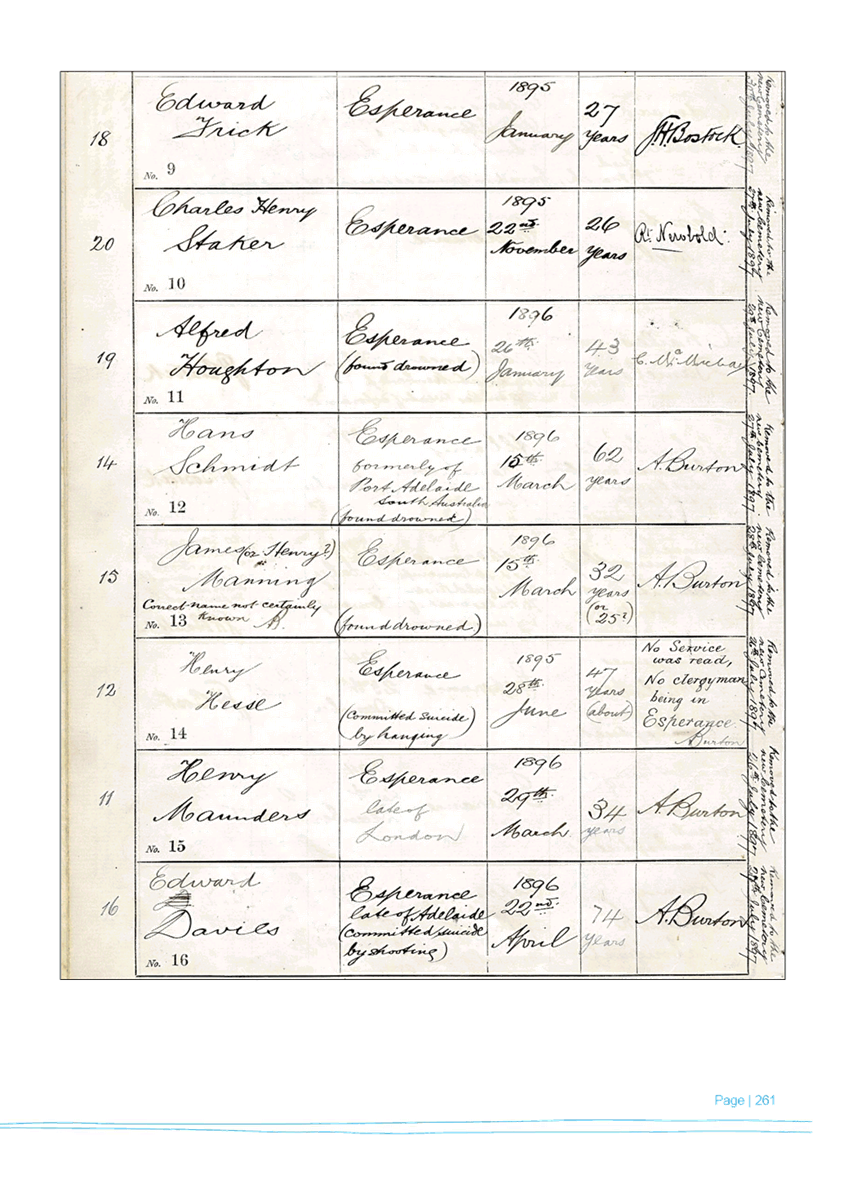 18
Edward
Frick
No. 9
Esperance
1895
January
27
years
J.H. Bostock
Removed to the
new Cemetery
20th July 1897
20
Charles Henry
Staker
No. 10
Esperance
1895
22nd
November
26
years
Rt. Newbold.
Removed to the
new Cemetery
27th July 1897
19
Alfred
Houghton
No. 11
Esperance
(found drowned)
1896
26th
January
43
years
Removed to the
new Cemetery
July 1897
14
Hans
Schmidt
No. 12
Esperance
formerly of
Port Adelaide
South Australia
(found drowned)
1896
15th
March
62
years
A. Burton
Removed to the
new Cemetery
27th July 1897
15
James (or Henry?)
Manning
Correct name not certainly
known
No. 13
Esperance
(found drowned)
1896
15th
March
32
years
(or
25?)
A. Burton
Removed to the
new Cemetery
28th July 1897
12
Henry
Hesse
No. 14
Esperance
(Committed Suicide
by hanging)
1895
28th
June
47
years
(about)
No Service
was read,
No clergyman
being in
Esperance.
A Burton
Removed to the
new Cemetery
26th July 1897
11
Henry
Maunders
No. 15
Esperance
late of
London
1896
29th
March
34
years
A. Burton
Removed to the
new Cemetery
26th July 1897
16
Edward
Davies
No. 16
Esperance
late of Adelaide
(committed suicide
by shooting)
1896
22nd
April
74
years
A. Burton
Removed to the
new Cemetery
July 1897
Page | 261